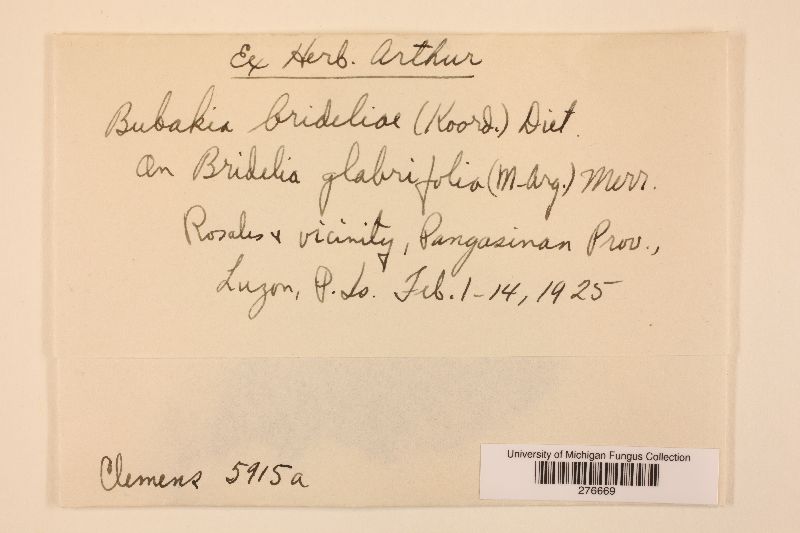 Ex Herb. Arthur
Bubakia brideliae (Koord.) Diet.
On Bridelia glabrifolia (M-Arg.) Merr.
Rosales & vicinity, Pangasinan Prov.,
Luzon, P. Is. Feb. 1-14, 1925
Clemens 5915a
University of Michigan Fungus Collection
276669